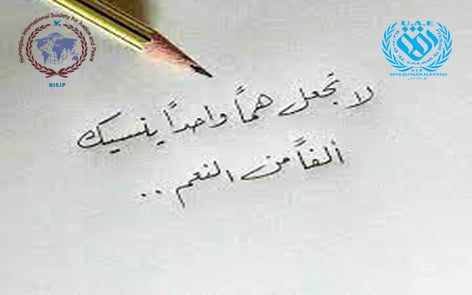 Norwegian International Society for Justice and Peace
NISJP
U.A.E
لا تجعل هماً واحداً ينسيك
ألفاً من النعم ..